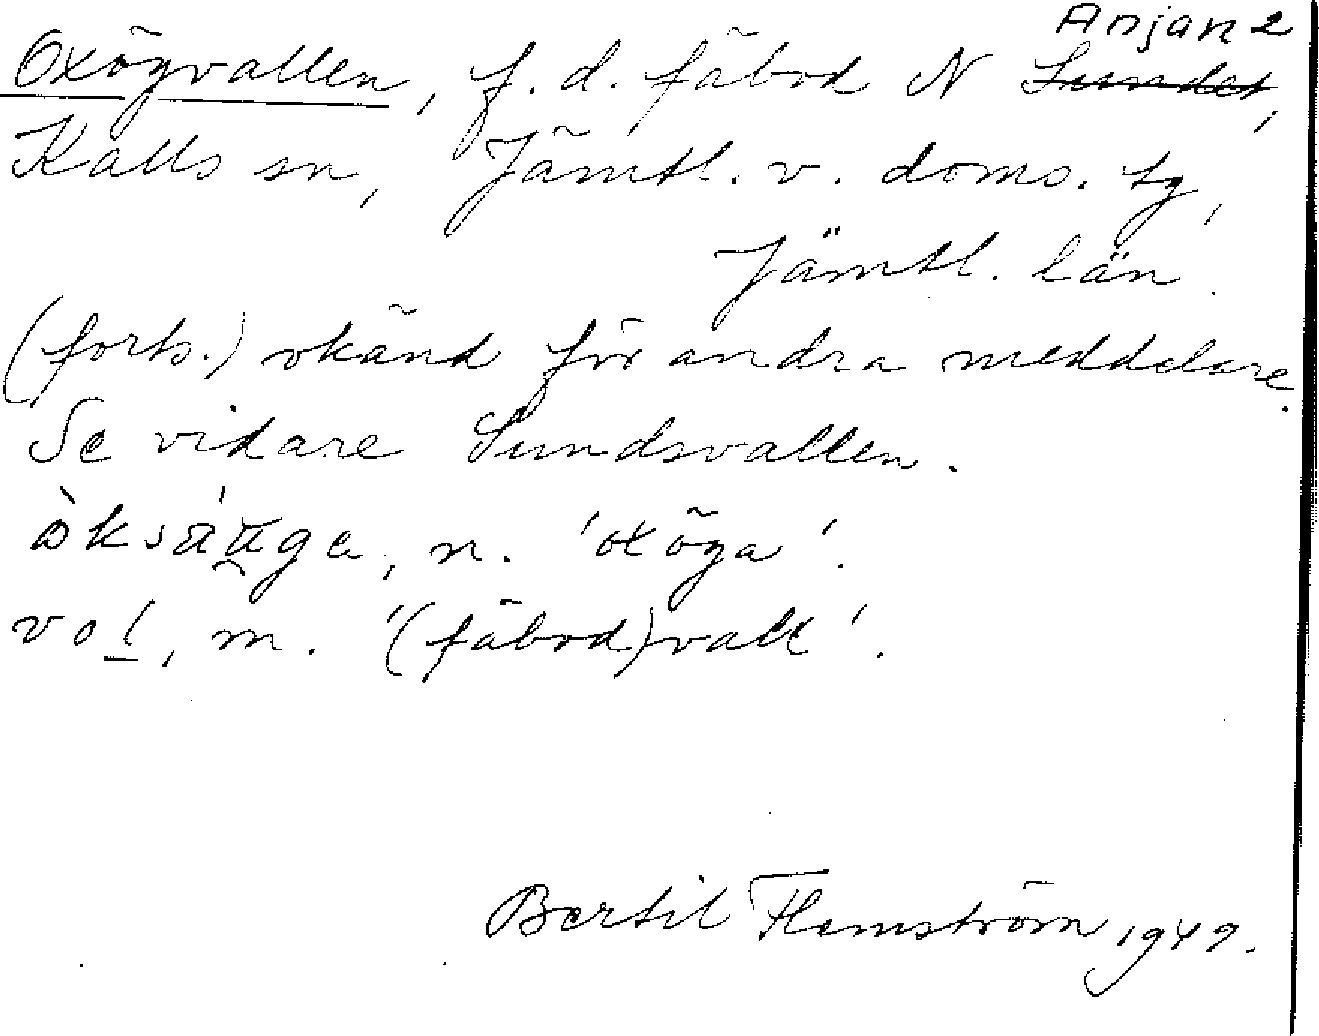 Anjan 2
Oxögvallen, f. d. fäbod N Sundet,
Kalls sn, Jämtl. v. doms. tg,
Jämtl. län.
(forts.) okänd för andra meddelare.
Se vidare Sundsvallen.
n. 'oxöga'.
vol, m. '(fäbod)vall'.
Bertil Flemström 1949.